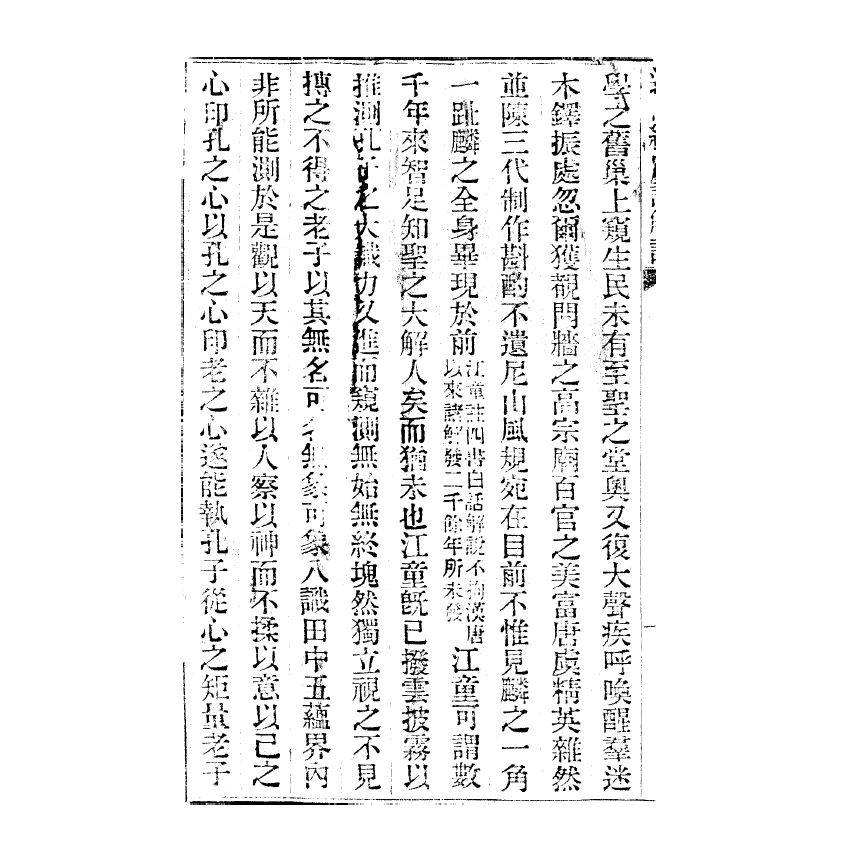 學之舊巢上窺生民未有至聖之堂奧又復大聲疾呼喚醒羣迷
木鐸振處忽爾獲覩門牆之高宗廟百官之美富唐虞精英雜然
並陳三代制作斟酌不遺尼山風規宛在目前不惟見麟之一角
一趾麟之全身畢現於前江童註四書白話解說不拘漢唐以來諸解發二千餘年所未發江童可謂數
千年來智足知聖之大解人矣而猶未也江童旣已撥雲披霧以
推測孔子之大識力又進而窺測無始無終塊然獨立視之不見
摶之不得之老子以其無名可名無象可象八識田中五蘊界內
非所能測於是觀以天而不雜以人察以神而不揉以意以己之
心印孔之心以孔之心印老之心遂能執孔子從心之矩量老子